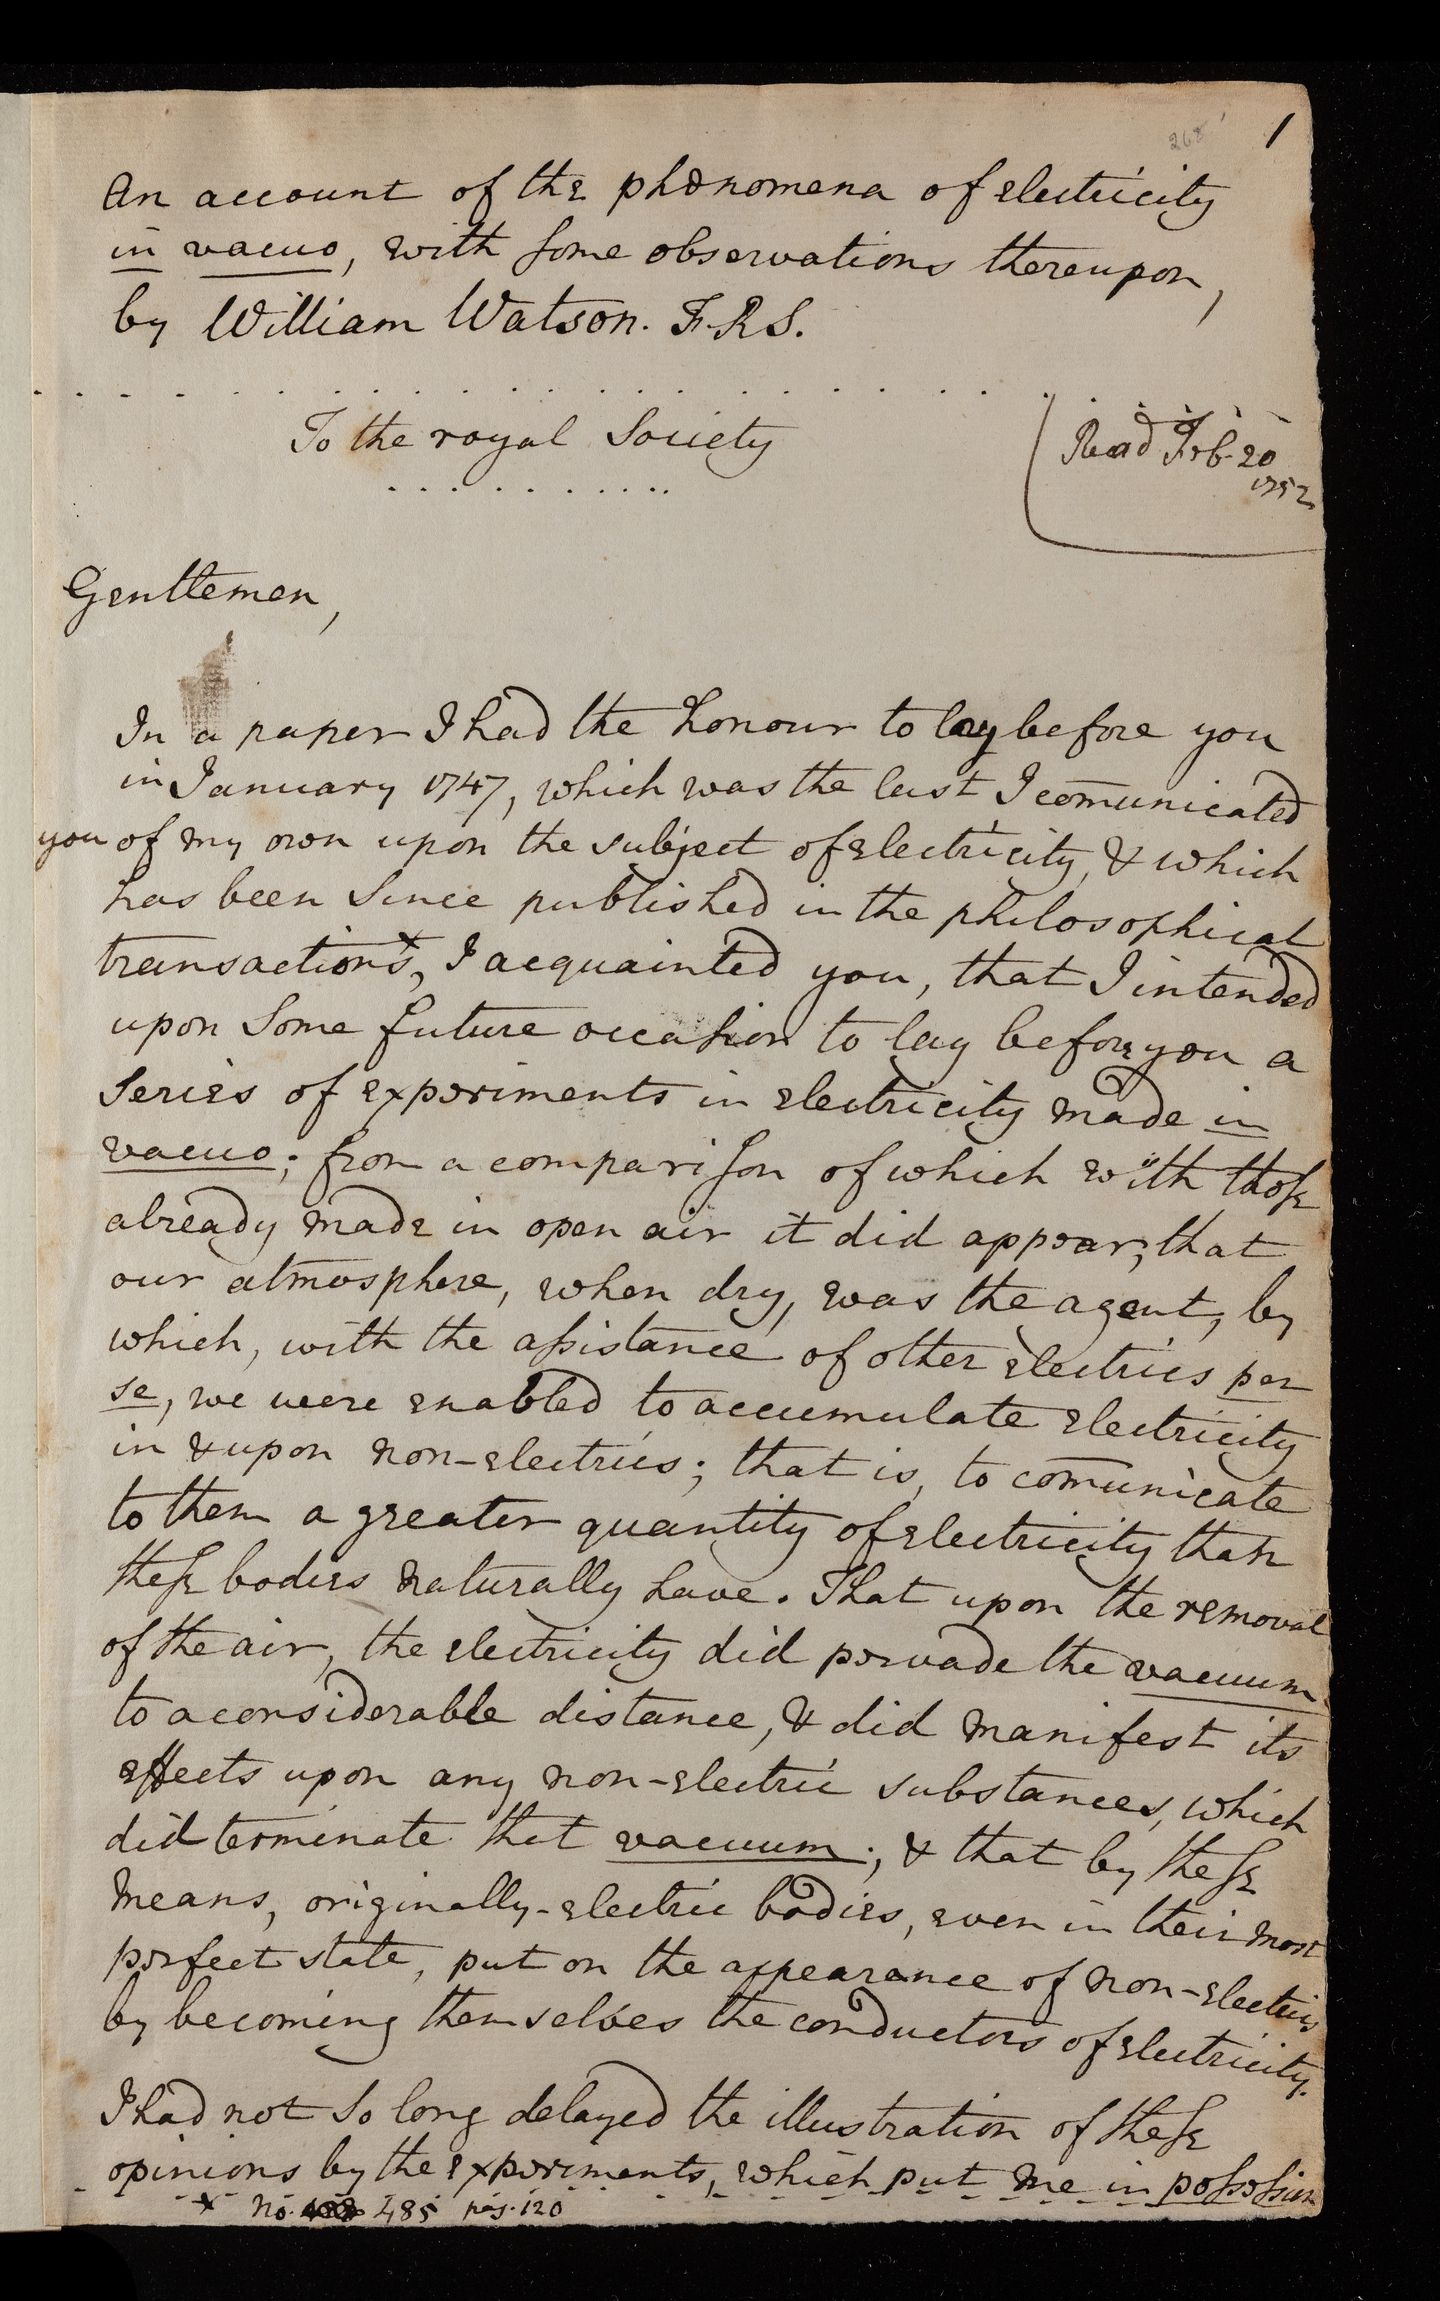 268
1
An account of the phœnomena of electricity
in vacuo, with some observations thereupon,
by William Watson. F.R.S.
To the royal Society
Read Feb. 20
1752
Gentlemen,
In a paper I had the honour to lay before you
in January 1747, which was the last I com̄unicated
you of my own upon the subject of electricity, & which
has been since published in the philosophical
transactions,ˣ I acquainted you, that I intended
upon some future occasion to lay before you a
series of experiments in electricity made in
vacuo; from a comparison of which with those
already made in open air it did appear, that
our atmosphere, when dry, was the agent, by
which, with the assistance of other electrics per
se, we were enabled to accumulate electricity
in & upon non-electrics; that is, to com̄unicate
to them a greater quantity of electricity than
these bodies naturally have. That upon the removal
of the air, the electricity did pervade the vacuum
to a considerable distance, & did manifest its
effects upon any non-electric substances, which
did terminate that vacuum; & that by these
means, originally-electric bodies, even in their most
perfect state, put on the appearance of non-electrics
by becoming themselves the conductors of electricity.
I had not so long delayed the illustration of these
opinions by the experiments, which put me in possession
x No. 485 pag. 120